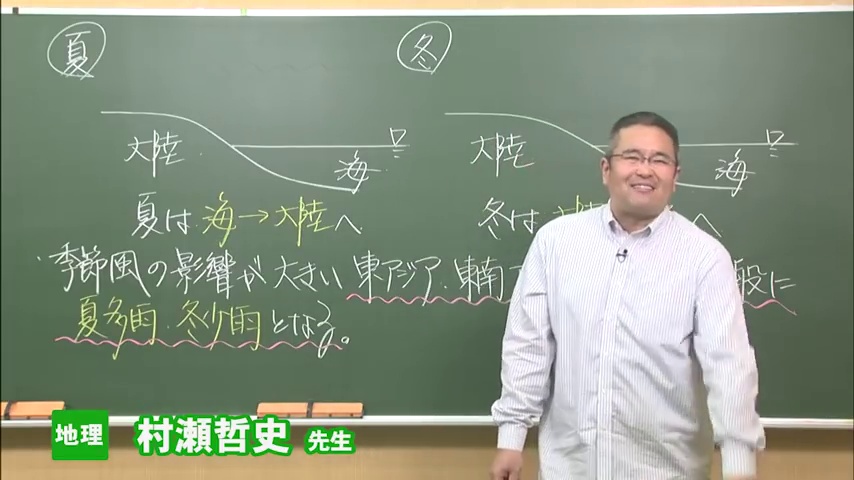 夏 冬
大陸 海 大陸 海
夏は 海→大陸へ 冬は 大陸 へ
季節風の影響が大きい東アジア・東南 般に
夏多雨・冬少雨となる。
地理 村瀬哲史 先生